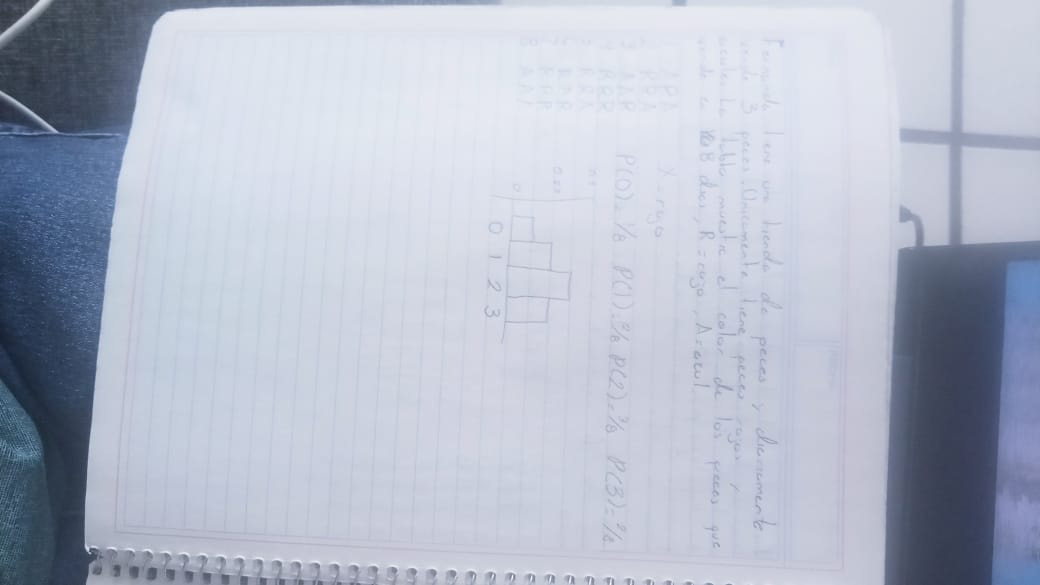 Fernanda tiene una tienda de peces y diariamente
vende 3 peces. Unicamente tiene peces rojos y
azules. La tabla muestra el color de los peces que
vende en 8 dias, R=rojo, A=azul.
ARA
2
3 AAR
4 RRR
RRA
RAR
RRR
8 AAA
X=rojo
P(0)=1/8 P(1)=2/8 P(2)=3/8 P(3)=2/8
0
0 1 2 3